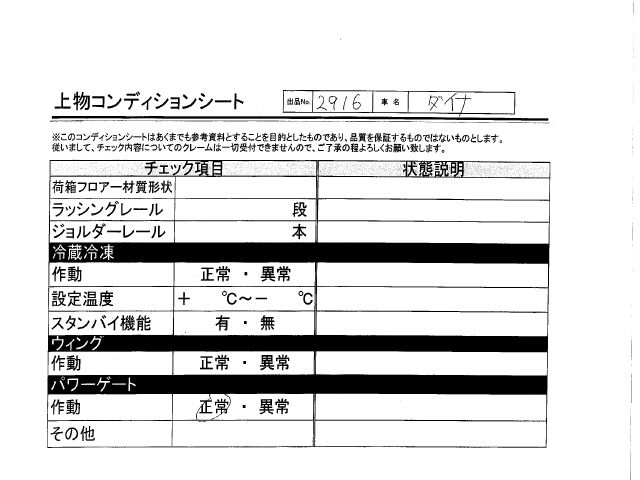 上物コンディションシート 出品No. 2916 車名 ダイナ
※このコンディションシートはあくまでも参考資料とすることを目的としたものであり、品質を保証するものではないものとします。
従いまして、チェック内容についてのクレームは一切受付できませんので、ご了承の程よろしくお願い致します。
チェック項目 状態説明
荷箱フロアー材質形状
ラッシングレール 段
ジョルダーレール 本
冷蔵冷凍
作動 正常 ・ 異常
設定温度 + ℃～− ℃
スタンバイ機能 有 ・ 無
ウィング
作動 正常 ・ 異常
パワーゲート
作動 正常 ・ 異常
その他